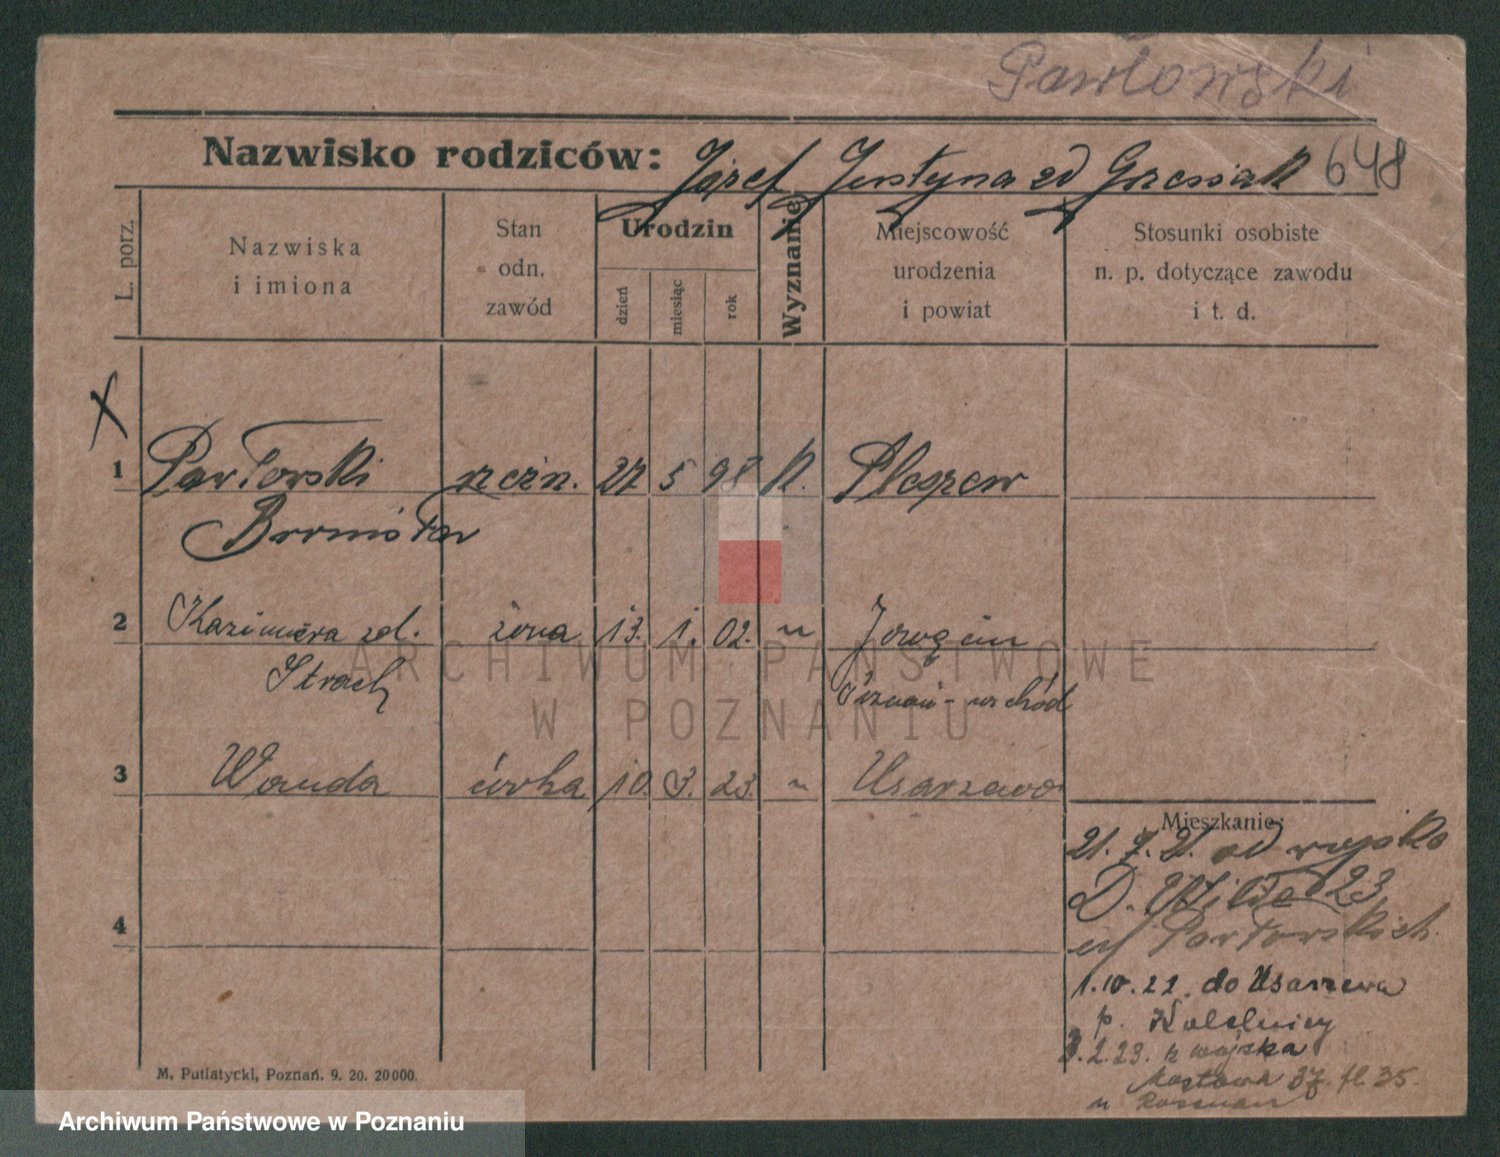 Pawłowski
Nazwisko rodziców: Józef Justyna zd Grzesiak 648
L. porz.
Nazwiska
i imiona
Stan
odn.
zawód
Urodzin
dzień
miesiąc
rok
Wyznanie
Miejscowość
urodzenia
i powiat
Stosunki osobiste
n. p. dotyczące zawodu
i t. d.
X
1 Pawłowski rzeźn. 27 5 98 k. Pleszew
Bronisław
2 Kazimiera zd. żona 13. 1. 02. "
Strach Poznań-wschód
3 Wanda córka 10. 3. 23. " Uzarzewo
Mieszkanie:
21. 7. 21. od wojska
D. Wilda 23
Pawłowskich
4
1.10.22. do Uzarzewa
p. Kobelnicy
3.2.23. z wojska
Mostowa 37
M. Putiatycki, Poznań. 9. 20. 20000.
ARCHIWUM PAŃSTWOWE
W POZNANIU
Archiwum Państwowe w Poznaniu